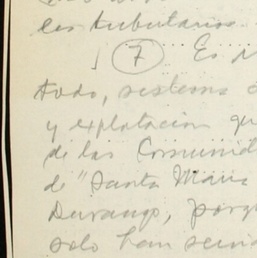 les tributarios.
7 Es
todo, sistema
y explotación que
de las Comunid
de "Santa María
Durango, porq
solo han servid